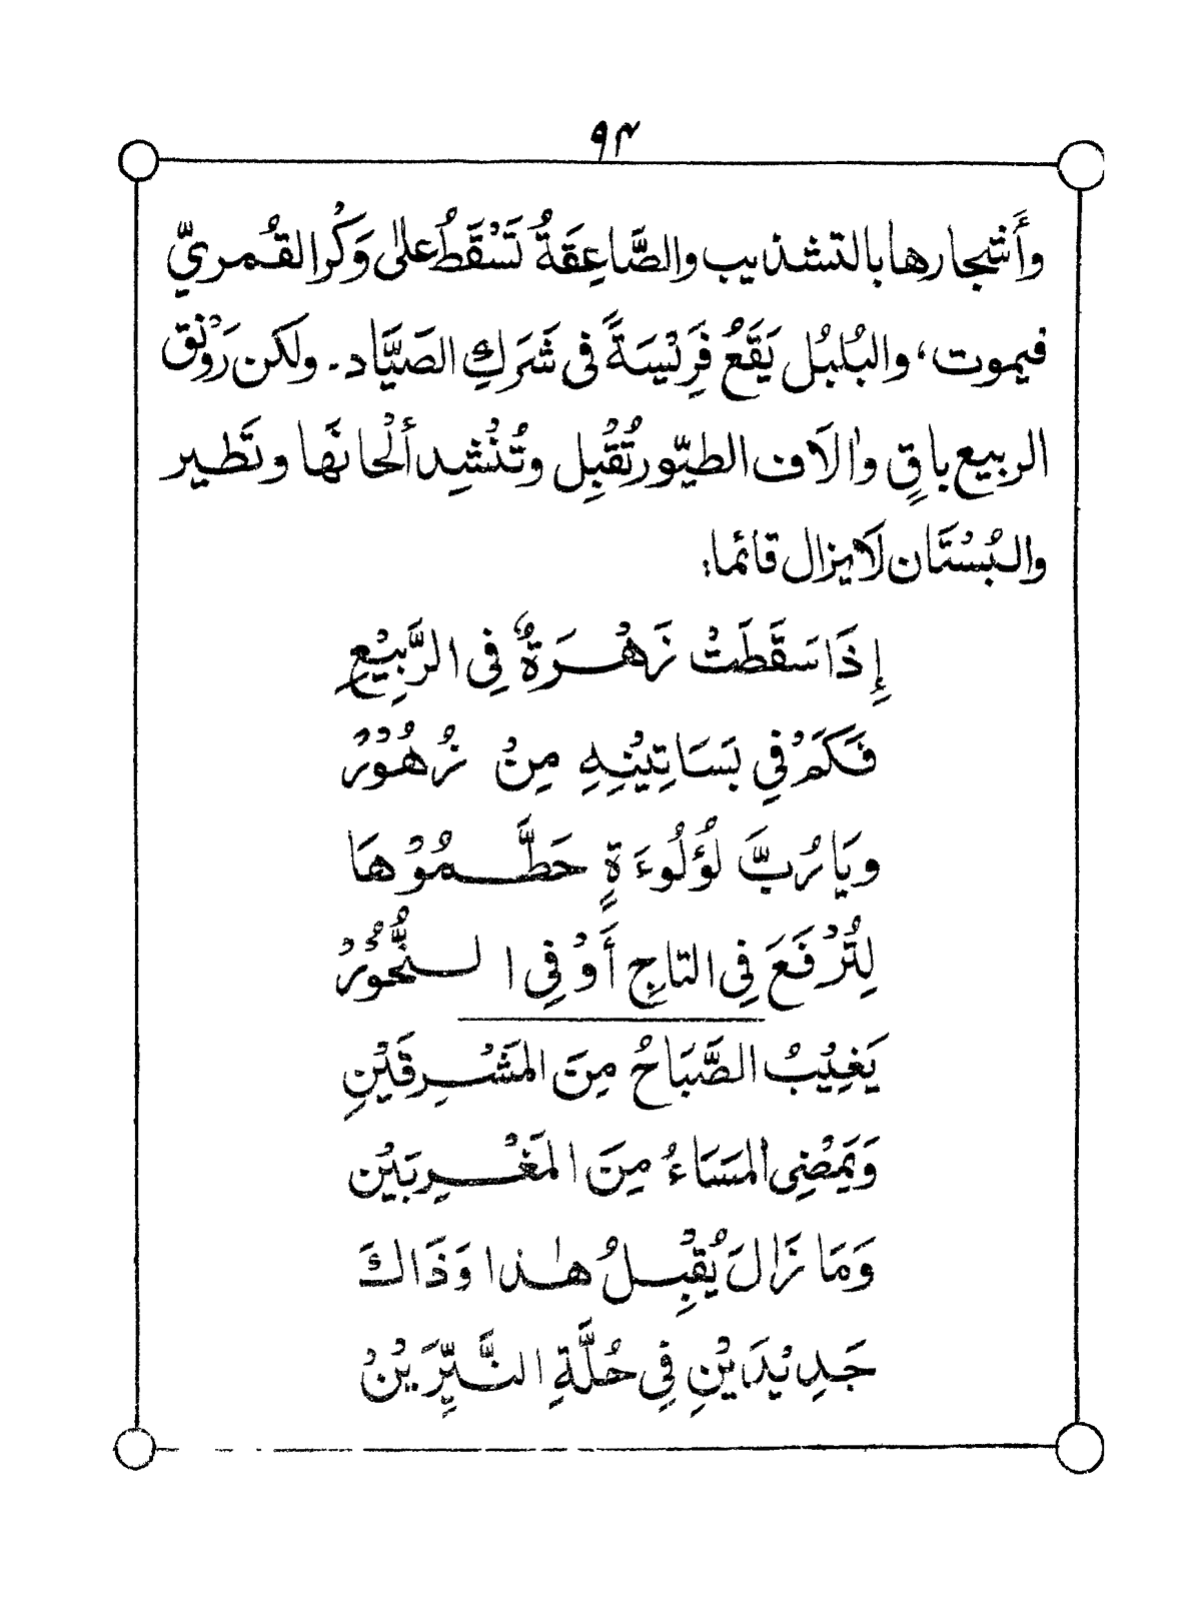 ٩٣
وأَشجارها بالتشذيب والصَّاعِقَةُ تَسْقَطُ علىٰ وَكْرا القُمريّ
فيموت، والبُلبُل يَقَعُ فَرِيْسَةً فى شَرَكِ الصَيَّاد ـ ولكن رَوْنق
الربيع باقٍ واٰلَاف الطيّور تُقْبِل وتُنْشِد ألْحانَها وتَطير
والبُسْتَان لَايزال قائما:
إِذَا سَقَطَتْ زَهْرَةٌ فِى الرَّبِيْعِ
فَكَمْ فِي بَسَاتِيْنِهِ مِنْ زُهُوْرْ
ويَا رُبَّ لُؤلُوءَةٍ حَطَّمُوْهَا
لِتُرْفَعَ فِى التاجِ أَوْ فِى النُّحُوْرْ
يَغِيْبُ الصَّبَاحُ مِنَ المَشْرِقَيْنِ
وَيَمْضِى المَسَاءُ مِنَ المَغْرِبَيْن
وَمَا زَالَ يُقْبِلُ هٰذا وَذَاكَ
جَدِيْدَيْنِ فِى حُلَّةِ النَّيِّرَيْنْ